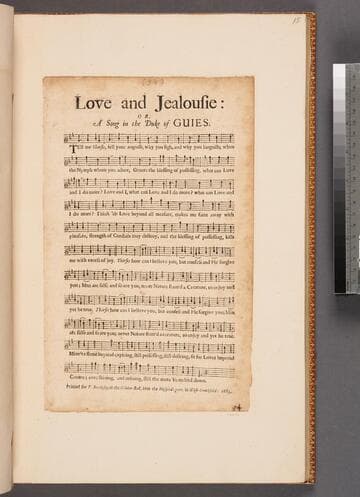 15
Love and Jealousie:
OR,
A Song in the Duke of GUIES.
TEll me Thirsis, tell your anguish, why you sigh, and why you languish, when
the Nymph whom you adore, Grants the blessing of possessing, what can Love
and I do more? Love and I, what can Love and I do more? what can Love and
I do more? Think 'tis Love beyond all measure, makes me faint away with
pleasure, strength of Cordials may destroy, and the blessing of possessing, kills
me with excess of joy. Thirsis how can I believe you, but confess and I'le forgive
you; Men are false and so are you, never Nature fram'd a Creature, to enjoy and
yet be true. Thirsis how can I believe you, but confess and I'le forgive you, Men
are false and so are you; never Nature fram'd a creature, to enjoy and yet be true.
Mine's a flame beyond expiring, still possessing, still desiring, fit for Loves Imperial
Crown; ever shining, and refining, still the more
Printed for P. Brooksby, at the Golden Ball, near the Hospital-gate, in West-Smithfield: 1683.